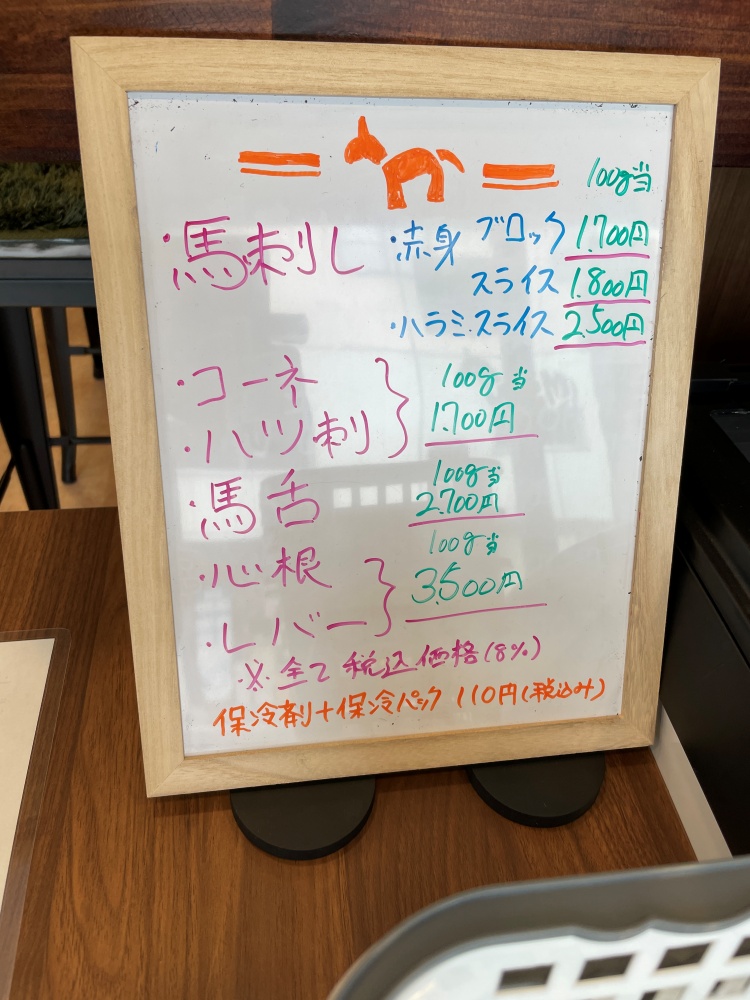 100g当
・馬刺し ・赤身 ブロック 1,700円
スライス 1,800円
・ハラミスライス 2,500円
・コーネ
・ハツ刺
100g当
1,700円
・馬舌
100g当
2,700円
・心根
・レバー
100g当
3,500円
※全て税込価格(8%)
保冷剤+保冷パック 110円(税込み)